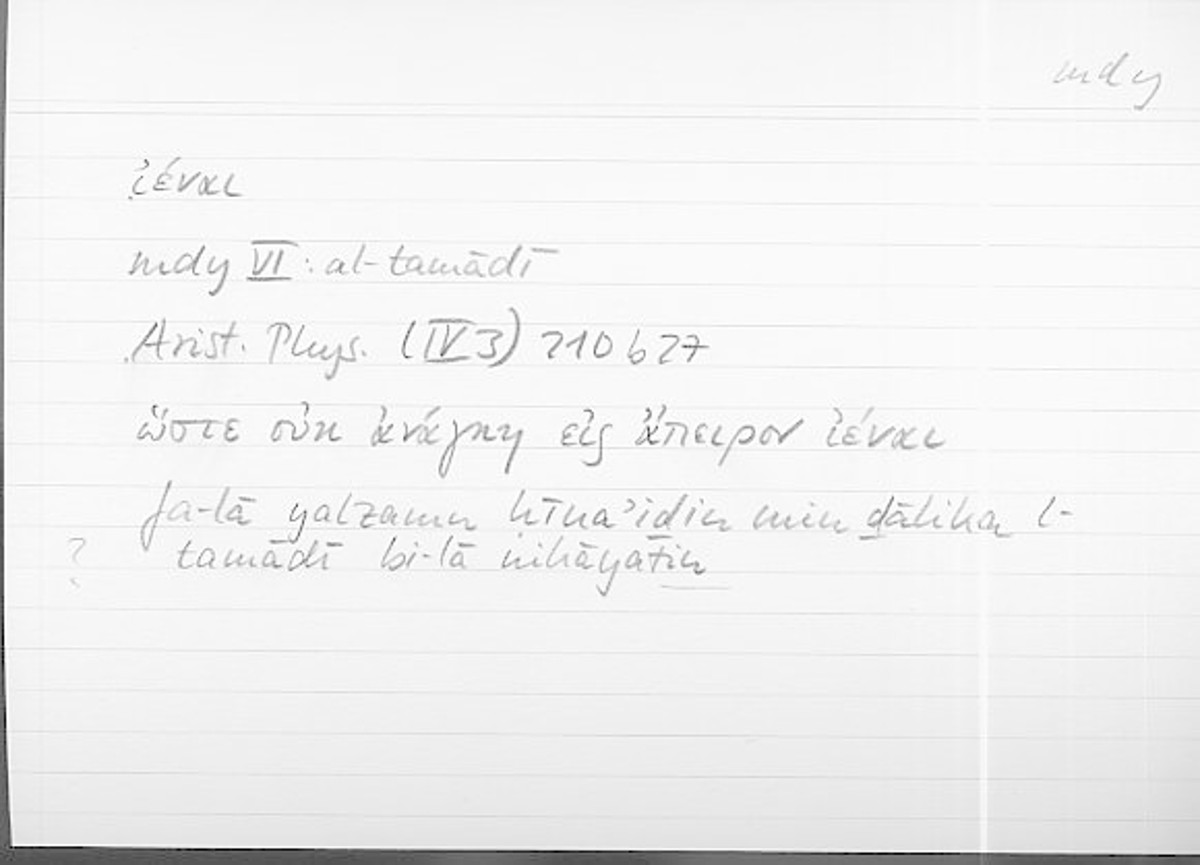 mdy
ἰέναι
mdy VI: al-tamādī
Arist. Phys. (IV 3) 210 b 27
ὥστε οὐκ ἀνάγκη εἰς ἄπειρον ἰέναι
fa-lā yalzamu ḥīnaʾiḏin min ḏālika l-
? tamādī bi-lā nihāyatin